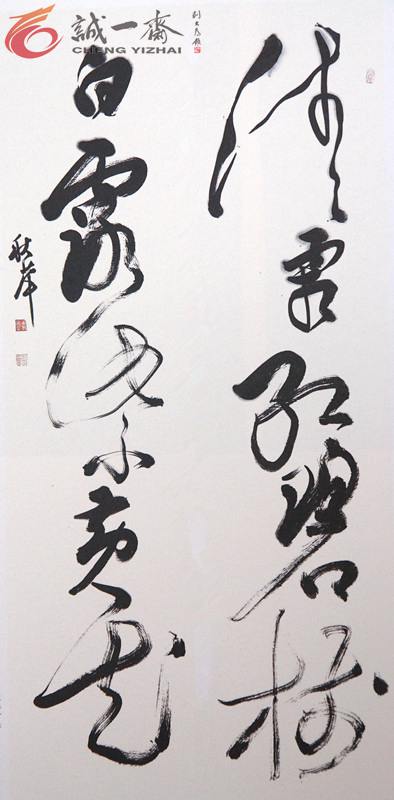 誠一齋
CHENG YIZHAI
清霜紅碧樹
白露紫黄花